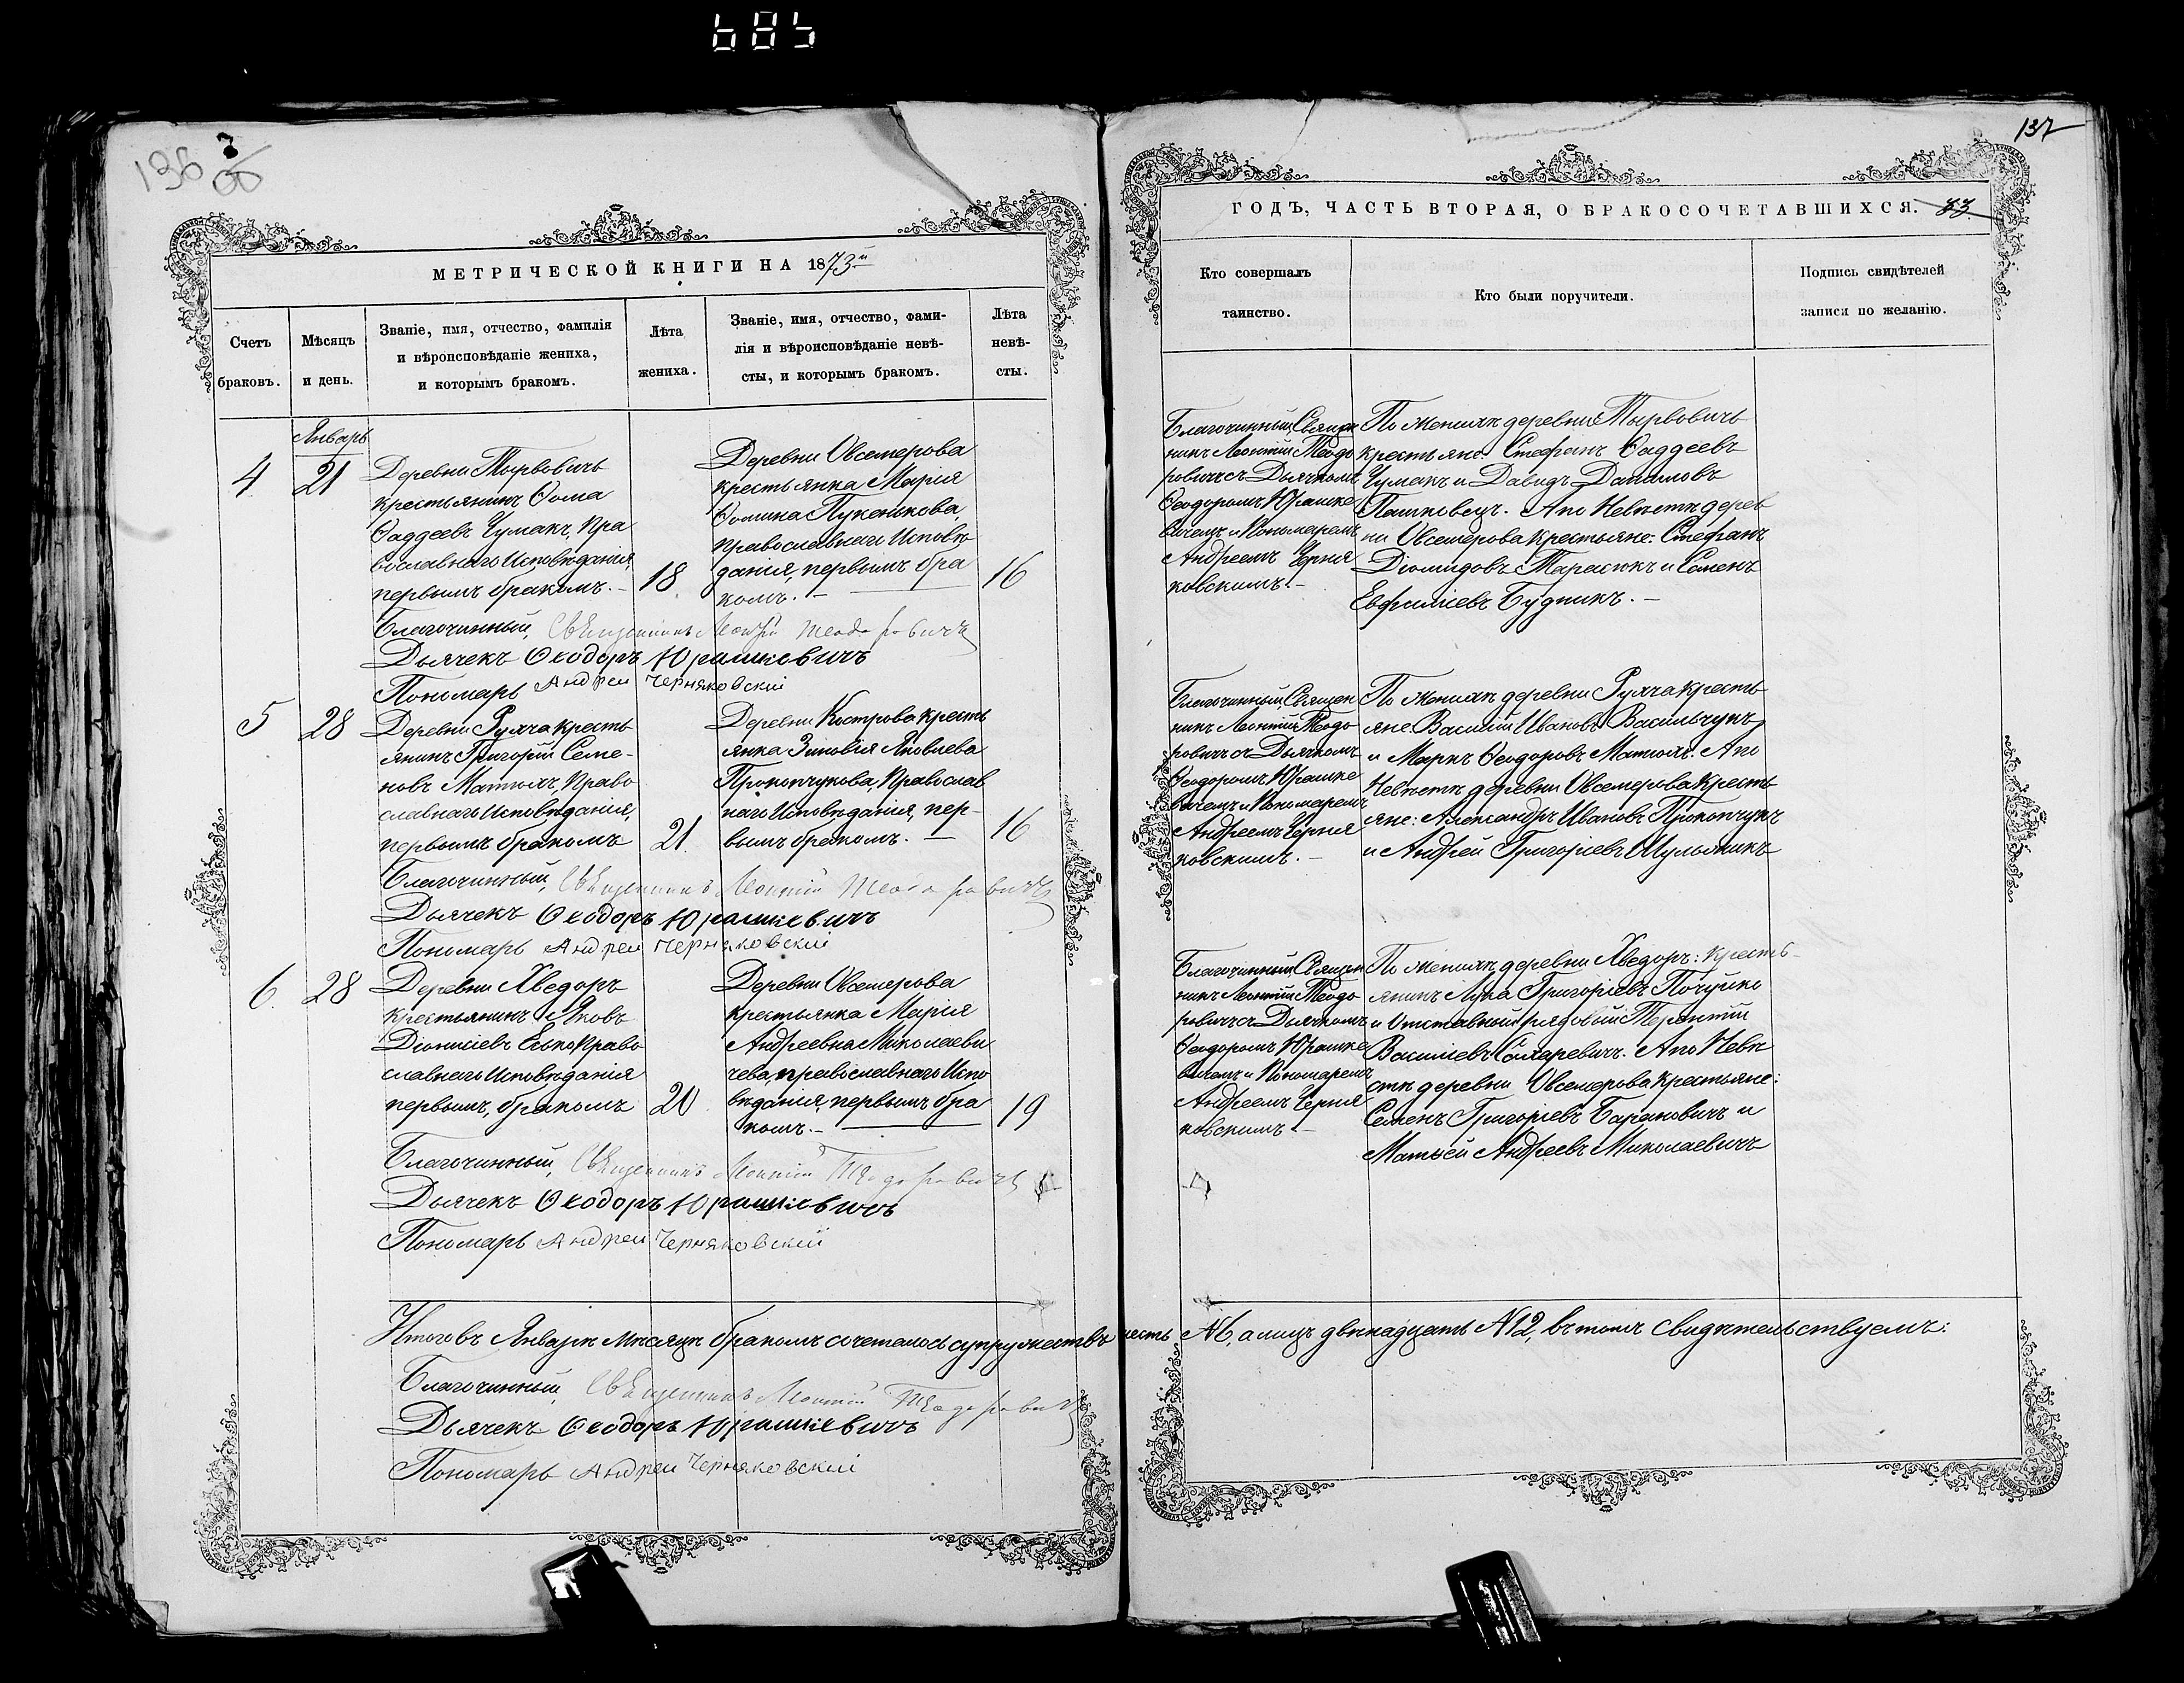 685
136 об
3
МЕТРИЧЕСКОЙ КНИГИ НА 1873й
Счетъ
браковъ.
Мѣсяцъ
и день.
Званіе, имя, отчество, фамилія
и вѣроисповѣданіе жениха,
и которымъ бракомъ.
Лѣта
жениха.
Званіе, имя, отчество, фами-
лія и вѣроисповѣданіе невѣ-
сты, и которымъ бракомъ.
Лѣта
невѣ-
сты.
Январь
4
21
Деревни Тырвовичъ
крестьянинъ Ѳома
Ѳаддеевъ Чумакъ, Пра
вославнаго Исповѣданія,
первымъ бракомъ.
18
Деревни Овсемерова
крестьянка Марія
Ѳомина Пукенькова,
православнаго Исповѣ
данія, первымъ бра
комъ.
16
Благочинный, Священникъ Леонтій Теодоровичъ
Дьячекъ Ѳеодоръ Юрашкевичъ
Пономарь Андрей Черняковскій
5
28
Деревни Рухча кресть
янинъ Григорій Семе-
новъ Матюхъ, Право
славнаго Исповѣданія,
первымъ бракомъ
21
Деревни Кострова кресть
янка Зиновія Яковлева
Прокопчукова, Православ
наго Исповѣданія, пер-
вымъ бракомъ.
16
Благочинный, Священникъ Леонтій Теодоровичъ
Дьячекъ Ѳеодоръ Юрашкевичъ
Пономарь Андрей Черняковскій
6.
28
Деревни Хведоръ
крестьянинъ Яковъ
Діонисіевъ Есько Право
славнаго Исповѣданія
первымъ, бракомъ
20
Деревни Овсемерова
крестьянка Марія
Андреевна Миколаеви
чева, православнаго Испо
вѣданія, первымъ бра
комъ.
19
Благочинный, Священникъ Леонтій Теодоровичъ
Дьячекъ Ѳеодоръ Юрашкевичъ
Пономарь Андрей Черняковскій
Итого въ Январѣ Мѣсяцѣ бракомъ сочеталось супружествъ шесть №6, а лицъ двѣнадцать №12, въ томъ свидѣтельствуемъ:
Благочинный, Священникъ Леонтій Теодоровичъ
Дьячекъ Ѳеодоръ Юрашкевичъ
Пономарь Андрей Черняковскій
137
ГОДЪ, ЧАСТЬ ВТОРАЯ, О БРАКОСОЧЕТАВШИХСЯ.
Кто совершалъ
таинство.
Кто были поручители.
Подпись свидѣтелей
записи по желанію.
Благочинный, Священ
никъ Леонтій Теодо
ровичъ съ Дьячкомъ
Ѳеодоромъ Юрашке
вичемъ и Пономаремъ
Андреемъ Черня
ковскимъ.
По женихѣ деревни Тырвовичъ
крестьяне: Стефанъ Ѳаддеевъ
Чумакъ и Давидъ Даниловъ
Пашковецъ. А по Невѣстѣ дерев
ни Овсемерова крестьяне: Стефанъ
Діомидовъ Тарасюкъ и Семенъ
Евфиміевъ Будникъ.
Благочинный, Священ
никъ Леонтій Теодо
ровичъ съ Дьячкомъ
Ѳеодоромъ Юрашке
вичемъ и Пономаремъ
Андреемъ Черня
ковскимъ.
По женихѣ деревни Рухча кресть
яне: Василій Ивановъ Васильчукъ
и Маркъ Ѳеодоровъ Матюхъ. А по
Невѣстѣ деревни Овсемерова кресть
яне: Александръ Ивановъ Прокопчукъ
и Андрей Григоріевъ Шульжикъ
Благочинный, Священ
никъ Леонтій Теодо
ровичъ съ Дьячкомъ
Ѳеодоромъ Юрашке
вичемъ и Пономаремъ
Андреемъ Черня
ковскимъ.
По женихѣ деревни Хведоръ: кресть-
янинъ Лука Григоріевъ Почуйко
и Отставной рядовой Терентій
Василіевъ Сахаревичъ. А по Невѣ
стѣ деревни Овсемерова крестьяне:
Семенъ Григоріевъ Барановичъ и
Матѳей Андреевъ Миколаевичъ